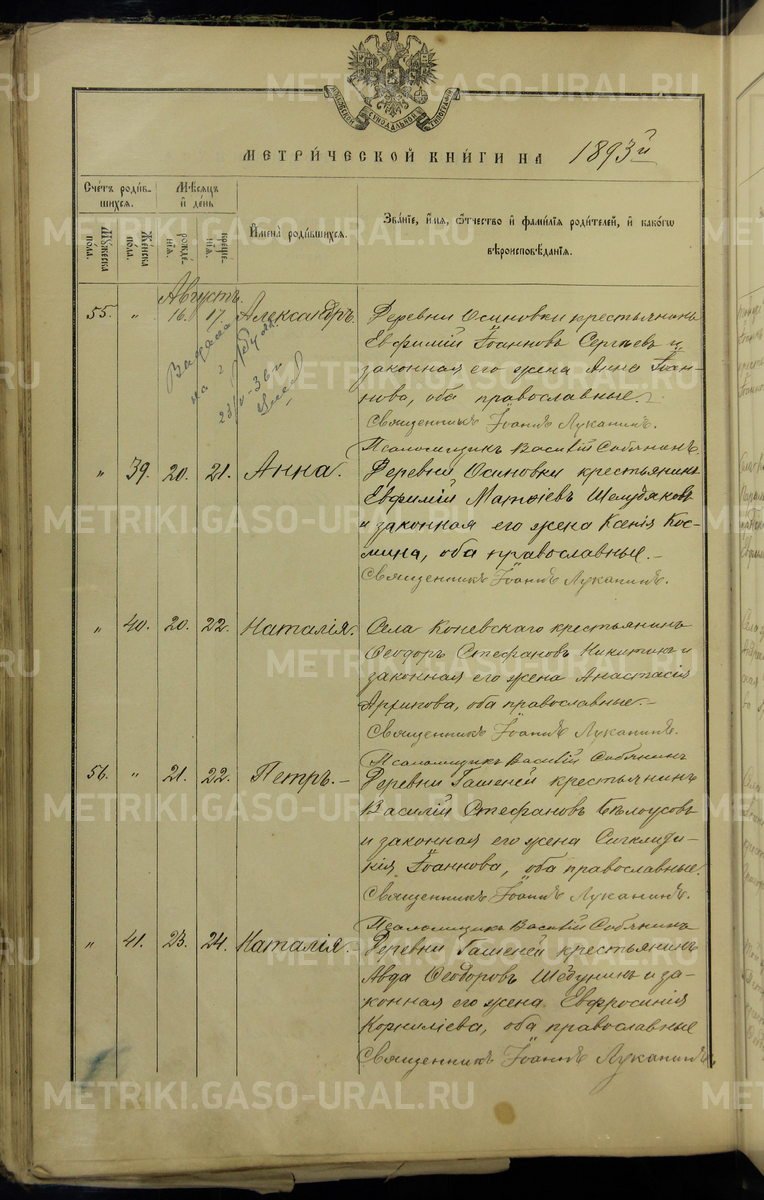 МОСКОВСКОЙ СѴНОДАЛЬНОЙ ТИПОГРАФІИ
МЕТРИ́ЧЕСКОЙ КНИ́ГИ НА 1893й
Сче́тъ роди́в-
шихся.
Мѣ́сяцъ
и҆ де́нь
И҆мена̀ роди́вшихся.
Зва́нїе, и҆́мя, ѻ҆́тчество и҆ фами́лїя роди́телей, и҆ како́гѡ
вѣроисповѣ́данїя.
Му́жеска
пола.
Же́нска
пола.
рожде́-
нїя.
креще-
нїя.
Августъ.
55. " 16. 17. Александръ. Деревни Осиновки крестьянинъ
Евфимій Іоанновъ Сергѣевъ и
законная его жена Анна Іоан-
нова, оба православные.
Священникъ Іоаннъ Луканинъ.
Псаломщикъ Василій Собянинъ.
на
23/V-36 г
" 39. 20. 21. Анна. Деревни Осиновки крестьянинъ
Евфимій Матѳіевъ Шелудяковъ
и законная его жена Ксенія Кос-
мина, оба православные.
Священникъ Іоаннъ Луканинъ.
" 40. 20. 22. Наталія. Села Коневскаго крестьянинъ
Ѳеодоръ Стефановъ Никитинъ и
законная его жена Анастасія
Архипова, оба православные.
Священникъ Іоаннъ Луканинъ.
Псаломщикъ Василій Собянинъ
56. " 21. 22. Петръ. Деревни Гашеней крестьянинъ
Василій Стефановъ Бѣлоусовъ
и законная его жена Сигклити-
кія Іоаннова, оба православные.
Священникъ Іоаннъ Луканинъ.
Псаломщикъ Василій Собянинъ
" 41. 23. 24. Наталія. Деревни Гашеней крестьянинъ
Авда Ѳеодоровъ и за-
конная его жена Евфросинія
Корниліева, оба православные
Священникъ Іоаннъ Луканинъ
METRIKI.GASO-URAL.RU